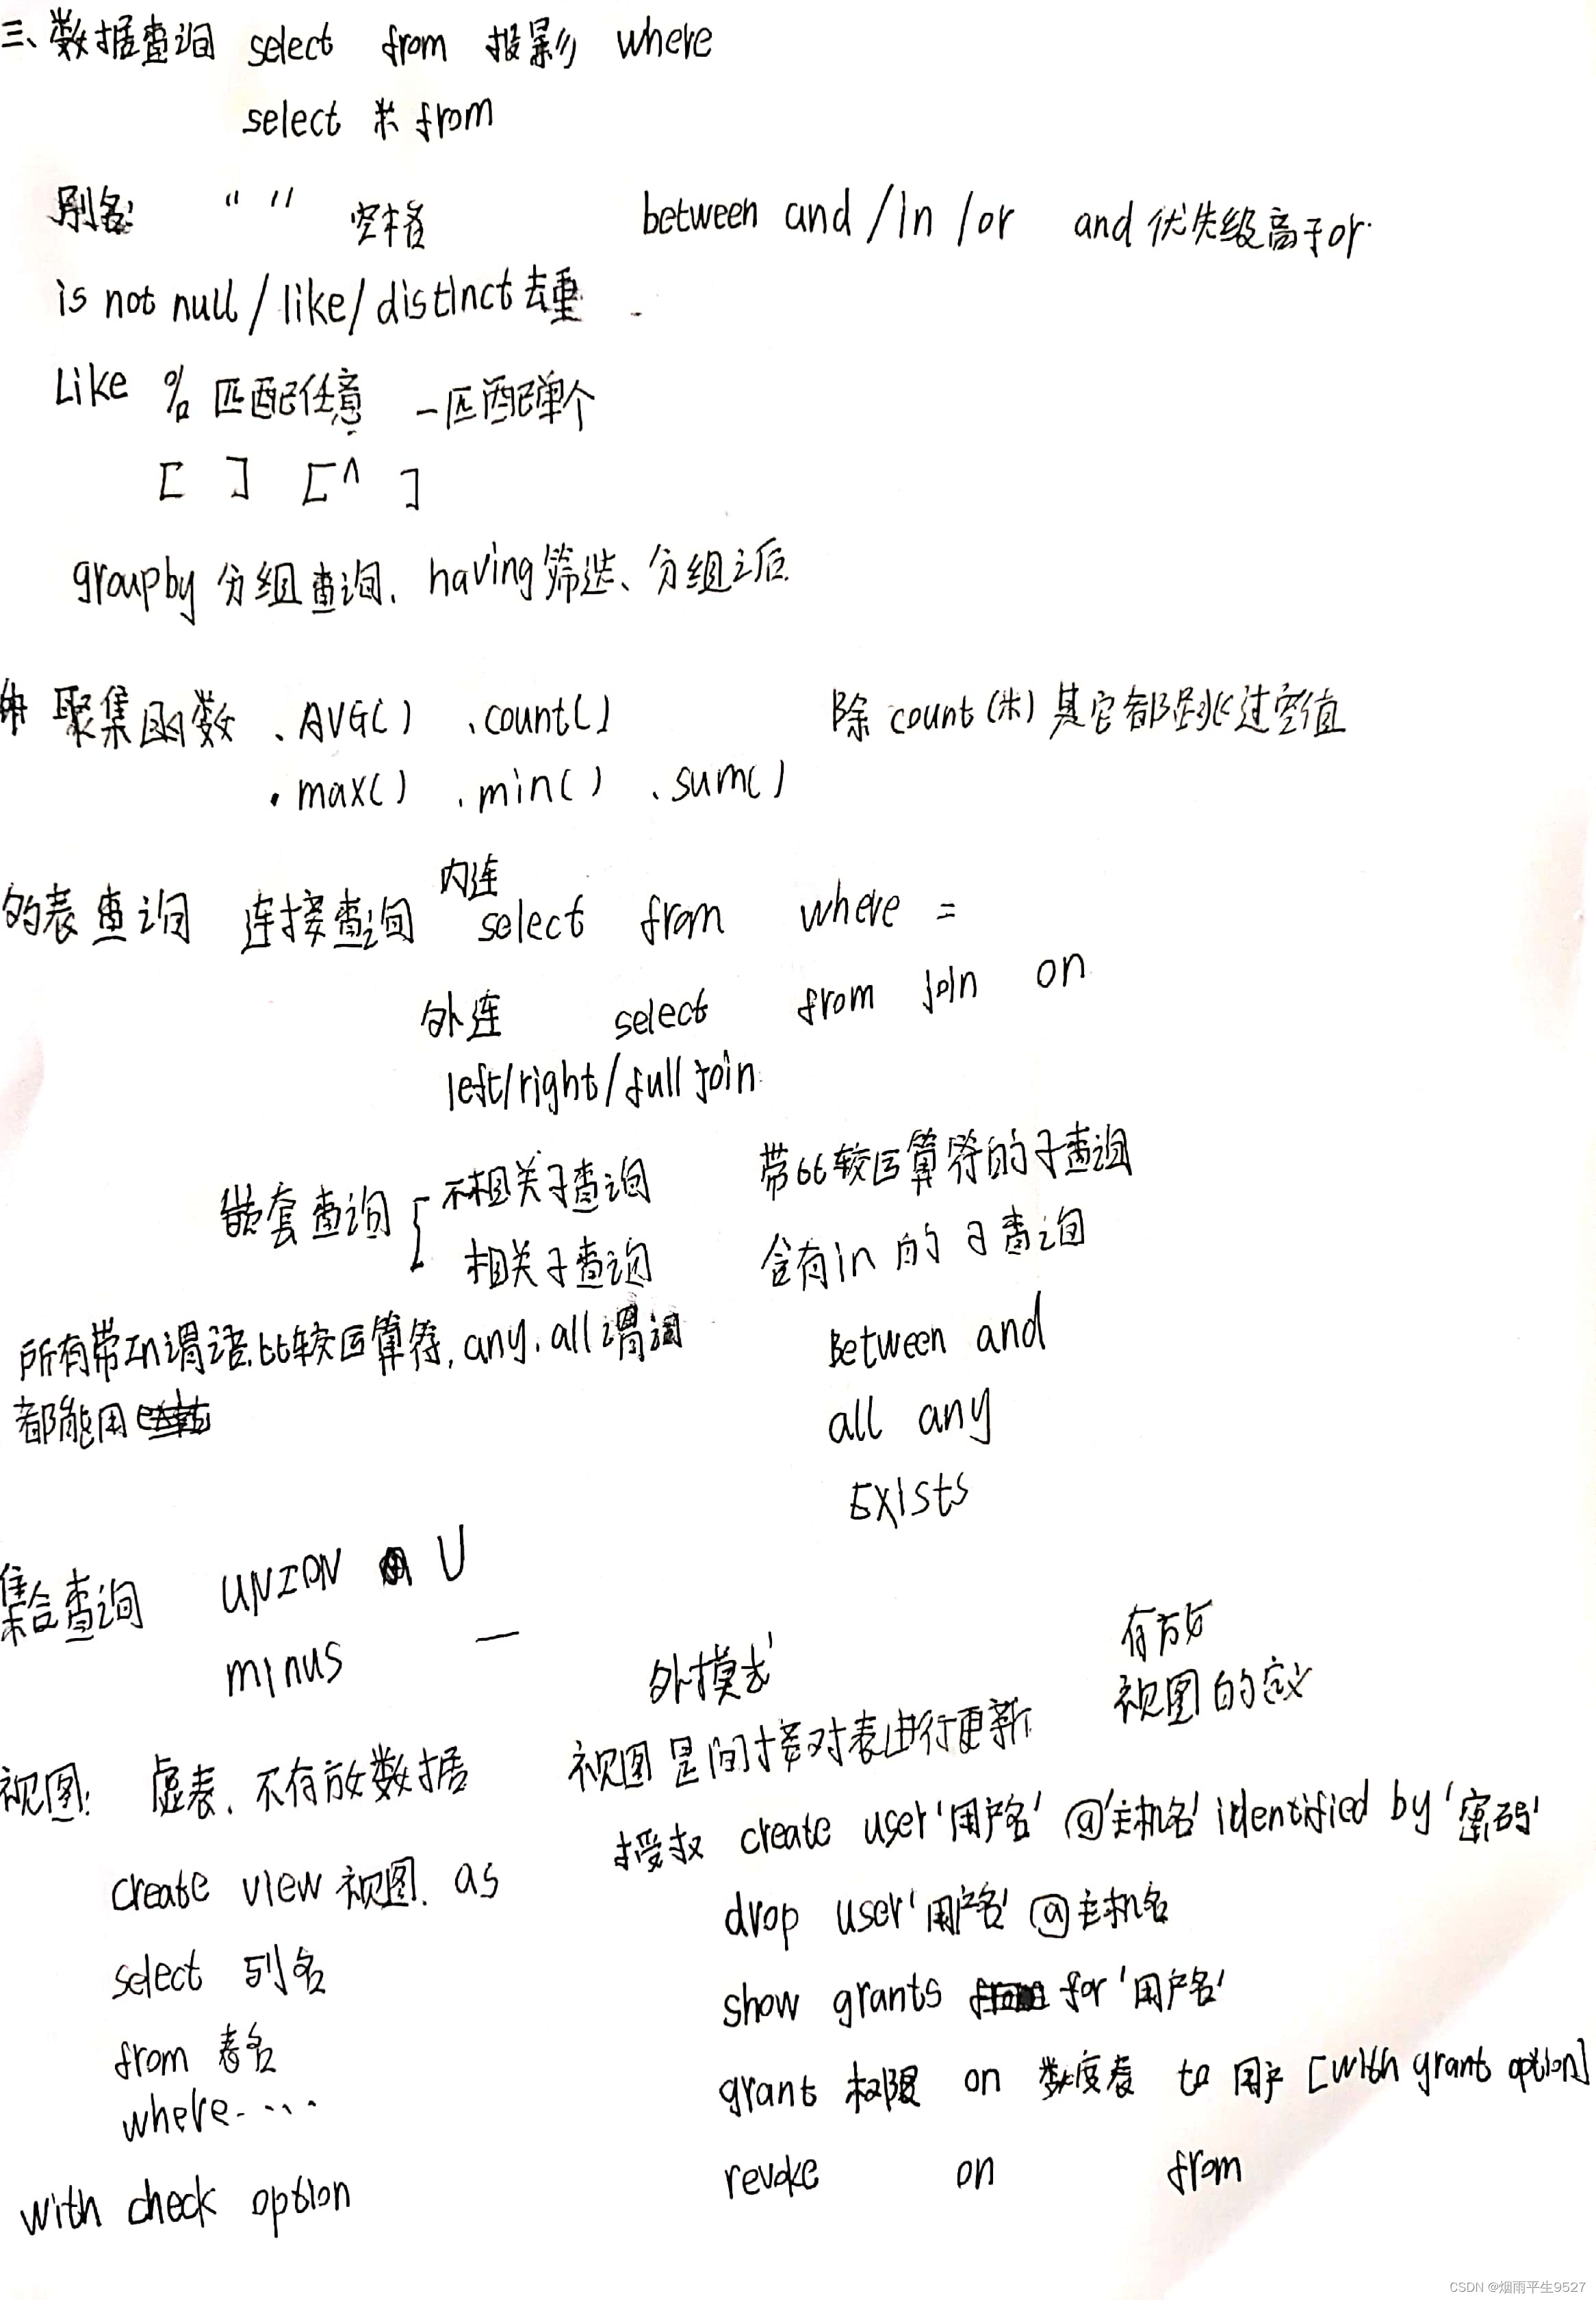 三、数据查询 select from 投影 where
select * from
别名: " " 空格 between and / in / or and 优先级高于or.
is not null / like / distinct 去重
Like % 匹配任意 _匹配单个
[ ] [^ ]
group by 分组查询. having 筛选、分组之后.
聚集函数 、AVG() 、count() 除 count(*) 其它都跳过空值
.max() .min() 、sum()
的表查询 连接查询 内连 select from where =
外连 select from join on
left/right/full join
嵌套查询 不相关子查询 带比较运算符的子查询
相关子查询 含有in 的子查询
所有带In谓语.比较运算符, any. all 谓词 Between and
都能用 all any
Exists
集合查询 UNION U
minus —
外模式 存放
视图的定义
视图: 虚表. 不存放数据 视图是间接对表进行更新
授权 create user '用户名' @'主机名' identified by '密码'
create view 视图. as drop user '用户名' @主机名
select 列名 show grants for '用户名'
from 表名 grant 权限 on 数度表 to 用户 [with grant option]
where....
with check option revoke on from
CSDN @烟雨平生9527